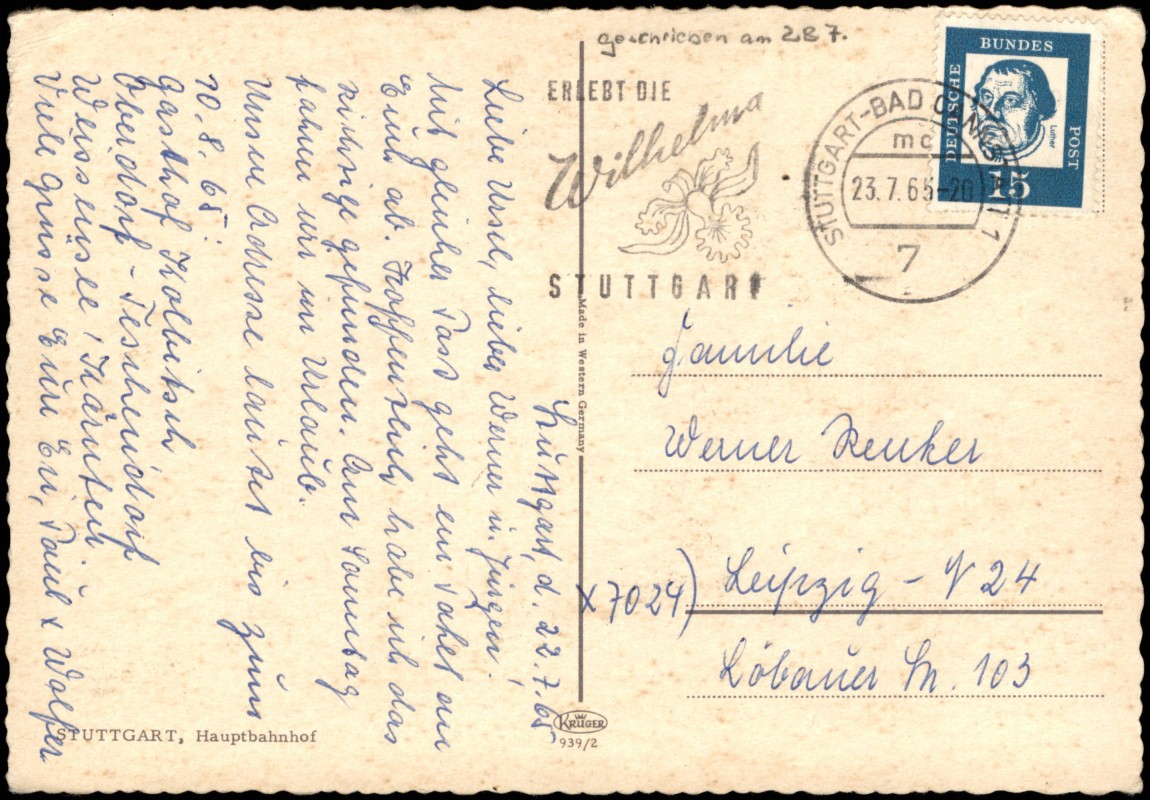 geschrieben am 28 7.
ERLEBT DIE
Wilhelma
STUTTGART
STUTTGART-BAD CANNSTATT 1
mc
23.7.65-20
7
DEUTSCHE
BUNDES
POST
Luther
15
Stuttgart, d. 22.7.65
Liebe Ursel, lieber Werner u. Jürgen!
Mit gleicher Post geht ein Paket an
Euch ab. Hoffentlich habe ich das
richtige gefunden. Am Samstag
fahren wir in Urlaub.
Unsere Adresse lautet bis zum
10.8.65:
Gasthof Kolbitsch
Oberdorf - Techendorf
Weissensee, Kärnten.
Viele Grüsse Eure Evi, Paul &
Familie
Werner Renker
X7024) Leipzig - N 24
Löbauer Str. 103
Made in Western Germany
KRÜGER
939/2
STUTTGART, Hauptbahnhof